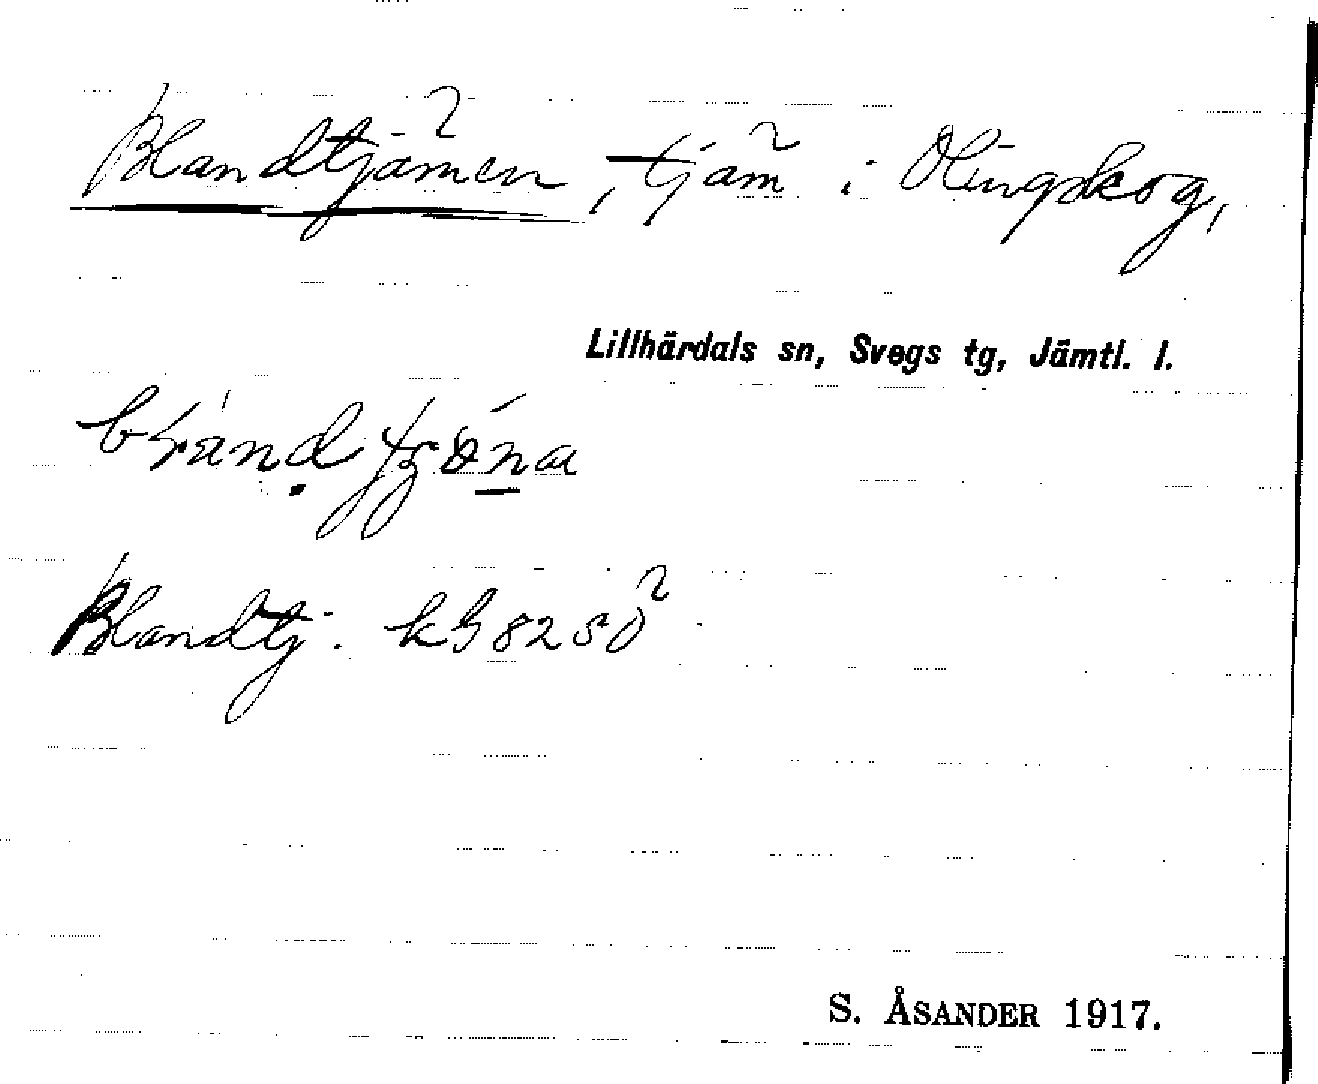 Blandtjärnen, tjärn i Olingskog,
Lillhärdals sn, Svegs tg, Jämtl. l.
Blandtj. kb 82 sö
S. ÅSANDER 1917.